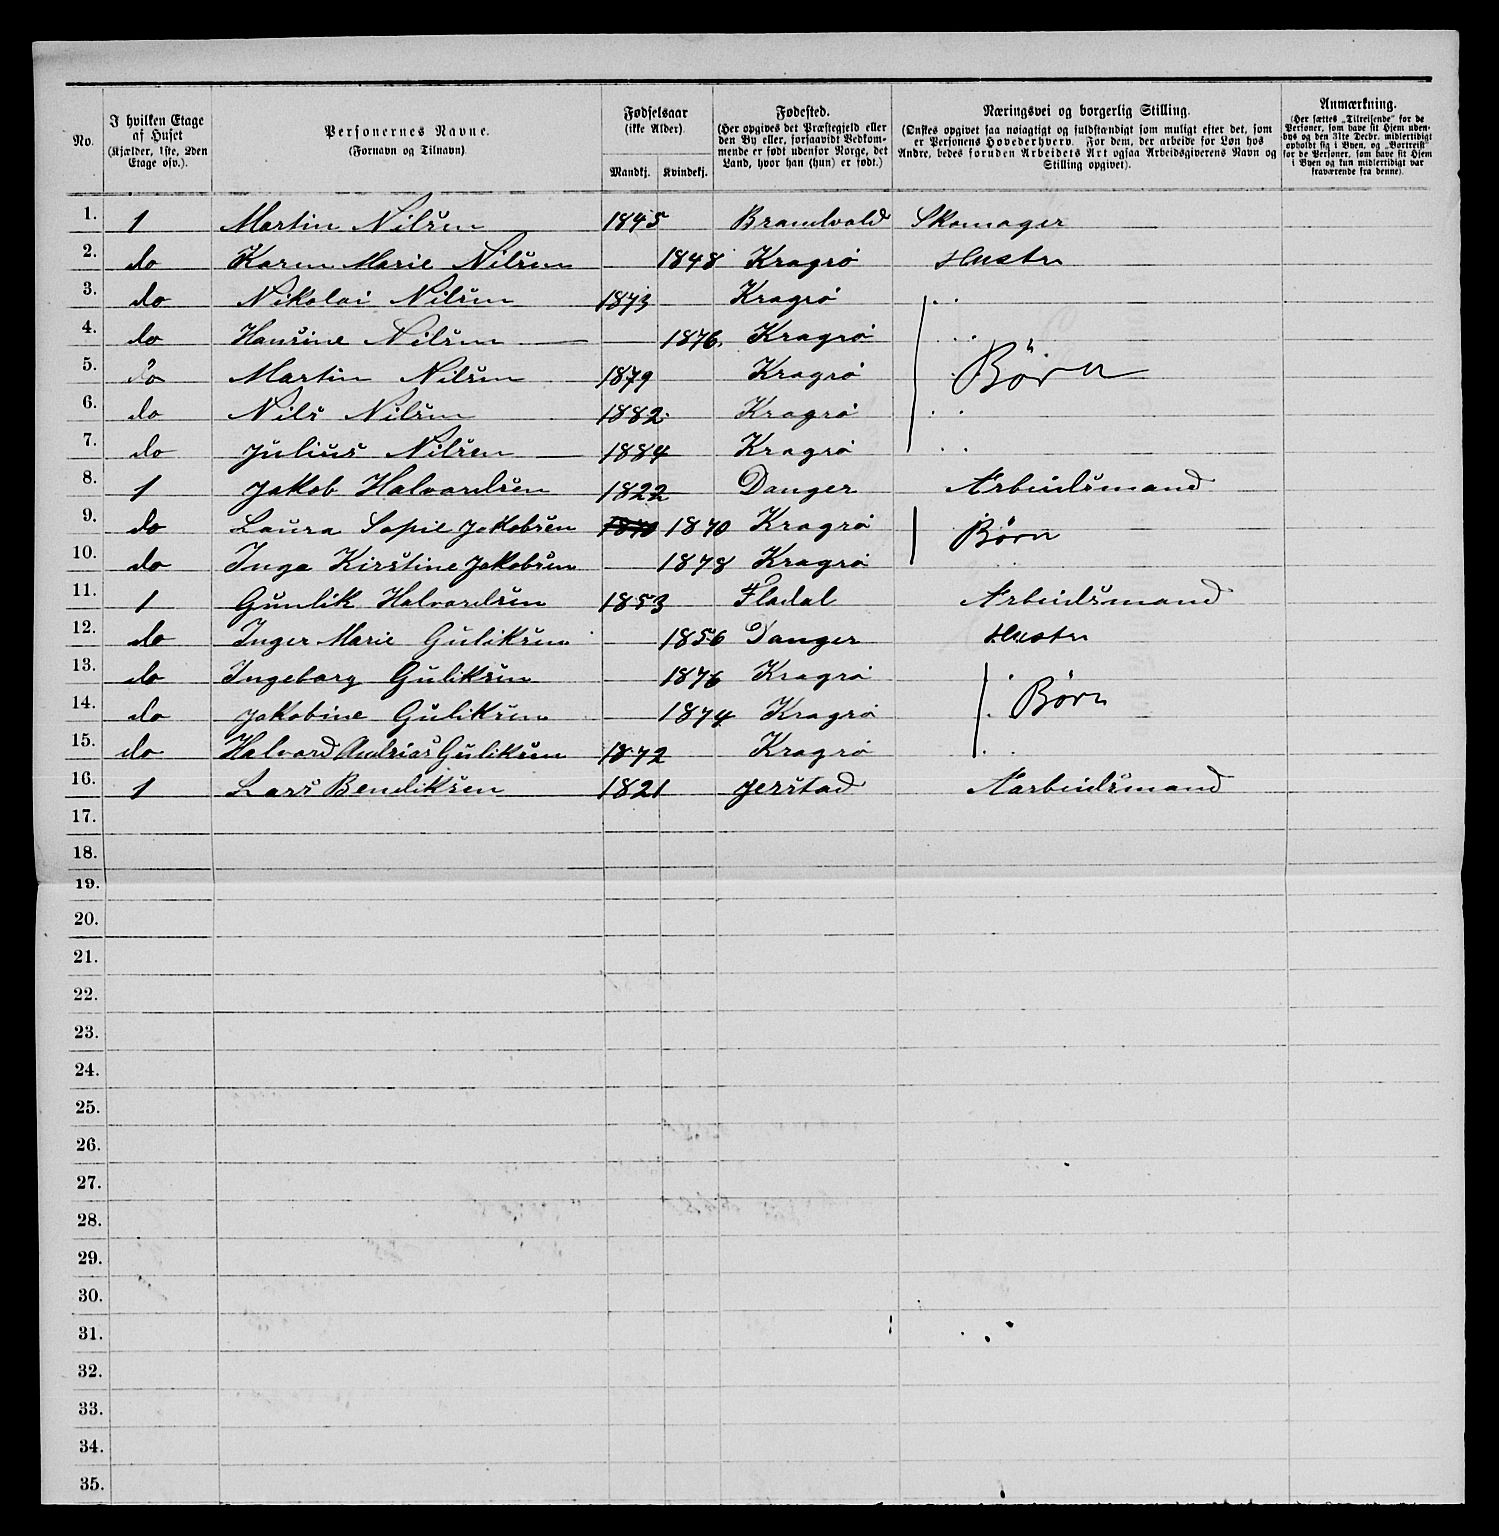 No. | I hvilken Etage af Huset (Kjælder, 1ste, 2den Etage osv.). | Personernes Navne. (Fornavn og Tilnavn) | Fødselsaar (ikke Alder) Mandkj. | Kvindekj. | Fødested. (Her opgives det Præstegjeld eller den By eller, forsaavidt Vedkommende er født udenfor Norge, det Land, hvor han (hun) er født.) | Næringsvei og borgerlig Stilling. (Ønskes opgivet saa nøiagtigt og fuldstændigt som muligt efter det, som er Personens Hovederhverv. For dem, der arbeide for Løn hos Andre, bedes foruden Arbeidets Art ogsaa Arbeidsgiverens Navn og Stilling opgivet). | Anmærkning. (Her sættes „Tilreisende“ for de Personer, som have sit Hjem udenbys og den 31te Decbr. midlertidigt opholdt sig i Byen, og „Bortreist“ for de Personer, som have sit Hjem i Byen og kun midlertidigt var fraværende fra denne).
1. 1 Martin Nilsen 1845 Brandvold Skomager
2. do Karen Marie Nilsen 1848 Kragrö Hustru
3. do Nikolai Nilsen 1873 Kragrö
4. do Hansine Nilsen 1876 Kragrö
5. do Martin Nilsen 1879 Kragrö Børn
6. do Nils Nilsen 1882 Kragrö
7. do Julius Nilsen 1884 Kragrö
8. 1 Jakob Halvordsen 1822 Danger Arbeidsmand
9. do Laura Sopie Jakobsen 1870 1870 Kragrö Børn
10. do Inga Kirstine Jakobsen 1878 Kragrö
11. 1 Gunlik Halvordsen 1853 Fladal Arbeidsmand
12. do Inger Marie Guliksen 1856 Danger Hustru
13. do Ingeborg Guliksen 1876 Kragrö
14. do Jakobine Guliksen 1874 Kragrö Børn
15. do Halvord Andrias Guliksen 1872 Kragrö
16. 1 Lars Bendiksen 1821 Jerstad Aarbeidsmand
17.
18.
19.
20.
21.
22.
23.
24.
25.
26.
27.
28.
29.
30.
31.
32.
33.
34.
35.